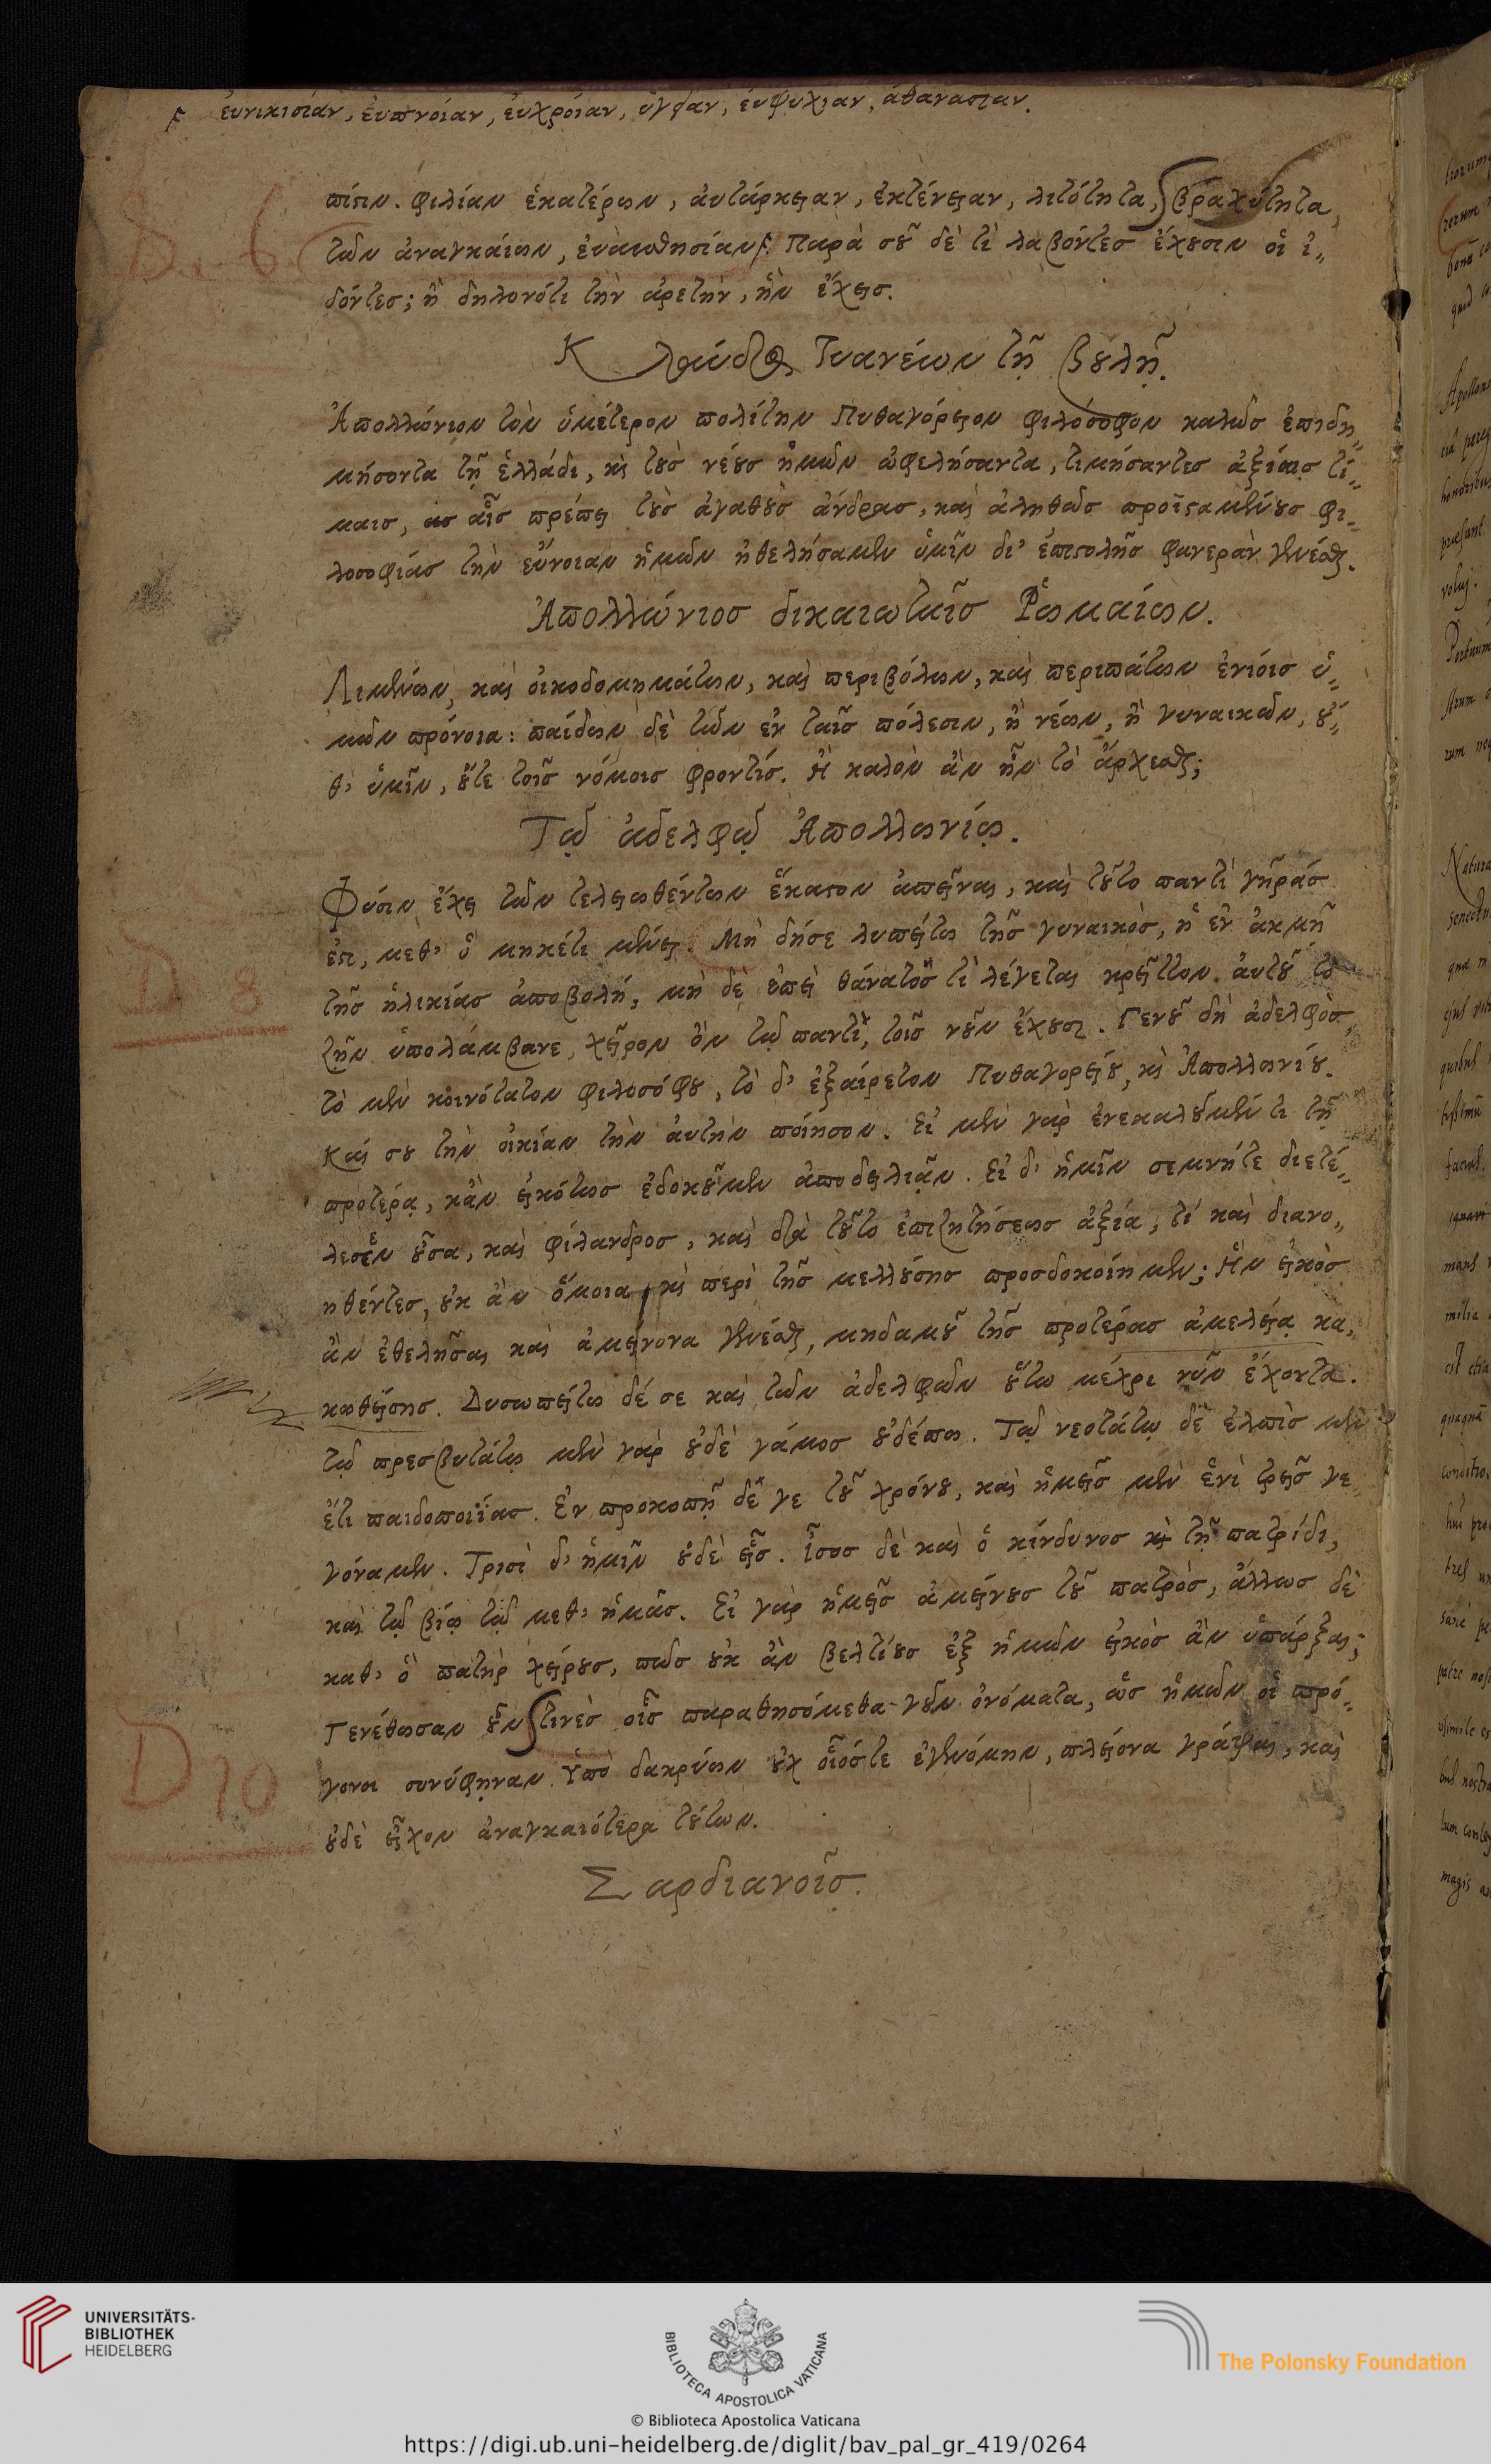 εὐνικισίαν, εὐπνοίαν, εὐχρόιαν, ὑγείαν, εὐψυχίαν, ἀθανασίαν.
πίστιν. φιλίαν ἑκατέρων, αὐτάρκειαν, ἐκτένειαν, λιτότητα, βραχύτητα,
τῶν ἀναγκαίων, εὐαισθησίαν Παρὰ σοῦ δὲ τὶ λαβόντεσ ἔχουσιν οἱ ἰ-
δόντεσ; ἢ δηλονότι τὴν ἀρετὴν, ἣν ἔχεισ.
Κλαύδιος Τυανέων τῇ βουλῇ.
Ἀπολλώνιον τὸν ὑμέτερον πολίτην Πυθαγόρειον φιλόσοφον καλῶσ ἐπιδη-
μήσοντα τῇ ἑλλάδι, καὶ τοὺσ νέουσ ἡμῶν ὠφελήσαντα, τιμήσαντεσ ἀξίαισ τί-
μαισ, ασ αἷσ πρέπει τοὺσ ἀγαθοὺσ ἄνδρασ, καὶ ἀληθῶσ προϊσαμένουσ φι-
λοσοφίασ τὴν εὔνοιαν ἡμῶν ἠθελήσαμεν ὑμῖν δι' ἐπιστολῆσ φανερὰν γενέσθαι.
Ἀπολλώνιοσ δικαιωταῖσ Ῥωμαίων.
Λιμένων, καὶ οἰκοδομημάτων, καὶ περιβόλων, καὶ περιπάτων ἐνίοισ ὑ-
μῶν πρόνοια: παίδων δὲ τῶν ἐν ταῖσ πόλεσιν, ἢ νέων, ἢ γυναικῶν, οὔ-
θ' ὑμῖν, οὔτε τοῖσ νόμοισ φροντίσ. Ἢ καλὸν ἂν ἦν τὸ ἄρχεσθαι;
Τῷ ἀδελφῷ Ἀπολλωνίῳ.
Φύσιν ἔχει τῶν τελειωθέντων ἕκαστον ἀπεῖναι, καὶ τοῦτο παντὶ γῆράσ
ἐστι, μεθ' ὃ μηκέτι μένει. Μὴ δήσε λυπείτω τῆσ γυναικὸσ, ἡ ἐν ἀκμῇ
τῆσ ἡλικίασ ἀποβολή, μὴ δὲ ἐπεὶ θάνατόσ τὶ λέγεται κρεῖττον αὐτοῦ τὸ
ζῆν ὑπολάμβανε, χεῖρον ὂν τῷ παντὶ, τοῖσ νοῦν ἔχουσι. Γενοῦ δὴ ἀδελφὸσ,
τὸ μὲν κοινότατον φιλοσόφου, τὸ δ' ἐξαίρετον Πυθαγορείου, καὶ Ἀπολλωνίου.
Καί σου τὴν οἰκίαν τὴν αὐτὴν ποίησον. Εἰ μὲν γὰρ ἐνεκαλοῦμέν τι τῇ
προτέρᾳ, κἂν εἰκότωσ ἐδοκοῦμεν ἀποδειλιᾷν. Εἰ δ' ἡμῖν σεμνήτε διετέ-
λεσεν οὖσα, καὶ φίλανδροσ, καὶ διὰ τοῦτο ἐπιζητήσεωσ ἀξία, τί καὶ διανο-
ηθέντεσ, οὐκ ἂν ὅμοια καὶ περὶ τῆσ μελλούσησ προσδοκοίημεν; Ἣν εἰκὸσ
ἂν ἐθελῆσαι καὶ ἀμείνονα γενέσθαι, μηδαμοῦ τῆσ προτέρασ ἀμελείᾳ κα-
κωθείσησ. Δυσωπείτω δέ σε καὶ τῶν ἀδελφῶν οὕτω μέχρι νῦν ἔχοντα.
τῷ πρεσβυτάτῳ μὲν γὰρ οὐδὲ γάμοσ οὐδέπω. Τῷ νεοτάτῳ δὲ ἐλπὶσ μὲν
ἔτι παιδοποιΐασ. Ἐν προκοπῇ δέ γε τοῦ χρόνου, καὶ ἡμεῖσ μὲν ἑνὶ τρεῖσ γε-
γόναμεν. Τρισὶ δ' ἡμῖν οὐδὲ εἷσ. Ἴσοσ δὲ καὶ ὁ κίνδυνοσ καὶ τῇ πατρίδι,
καὶ τῷ βίῳ τῷ μεθ' ἡμᾶσ. Εἰ γὰρ ἡμεῖσ ἀμείνουσ τοῦ πατρὸσ, ἄλλωσ δὲ
καθ' ὃ πατὴρ χείρουσ, πῶσ οὐκ ἂν βελτίουσ ἐξ ἡμῶν εἰκὸσ ἂν ὑπάρξαι;
Γενέθωσαν οὖν τινὲσ οἷσ παραθησόμεθα γοῦν ὀνόματα, ὣσ ἡμῶν οἱ πρό-
γονοι συνύφηναν. Ὑπὸ δακρύων οὐχ οἷόστε ἐγενόμην, πλείονα γράψαι, καὶ
οὐδὲ εἶχον ἀναγκαιότερα τούτων.
Σαρδιανοῖσ.
D. 6.
D 8
D 10
UNIVERSITÄTS-
BIBLIOTHEK
HEIDELBERG
BIBLIOTECA APOSTOLICA VATICANA
The Polonsky Foundation
© Biblioteca Apostolica Vaticana
https://digi.ub.uni-heidelberg.de/diglit/bav_pal_gr_419/0264